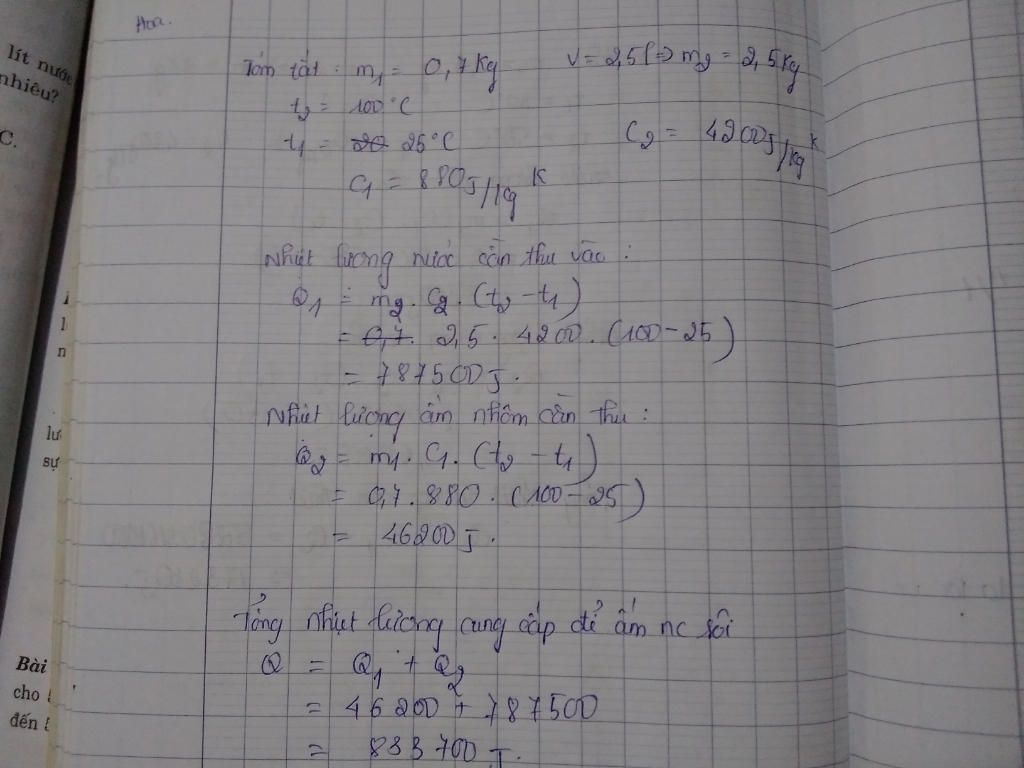 Hoa.
lít nước
nhiêu?
C.
Tóm tắt : m₁ = 0,7 Kg V = 2,5l => m₂ = 2,5 kg
t₂ = 100°C
t₁ = 20 25°C C₂ = 4200J/kg K
C₁ = 880J/kg K
Nhiệt lượng nước cần thu vào :
Q₁ = m₂. C₂. (t₂ - t₁)
= 0,7. 2,5. 4200. (100 - 25)
= 787500J.
Nhiệt lượng ấm nhôm cần thu :
Q₂ = m₁. C₁. (t₂ - t₁)
= 0,7. 880. (100 - 25)
= 46200J.
Tổng nhiệt lượng cung cấp để ấm nc sôi
Q = Q₁ + Q₂
= 46200 + 787500
= 833700J.
lư
sự
Bài
cho
đến